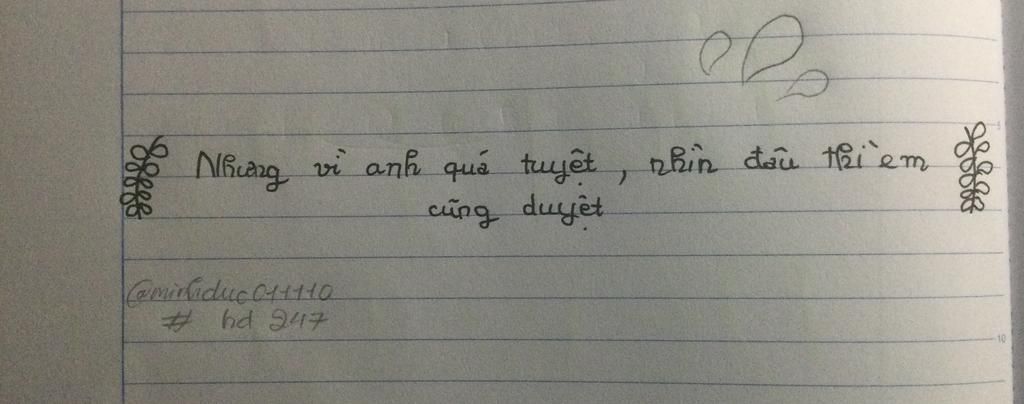 Nhưng vì anh quá tuyệt, nhìn đâu thì em
cũng duyệt
@minhduc011110
# hd 247
10